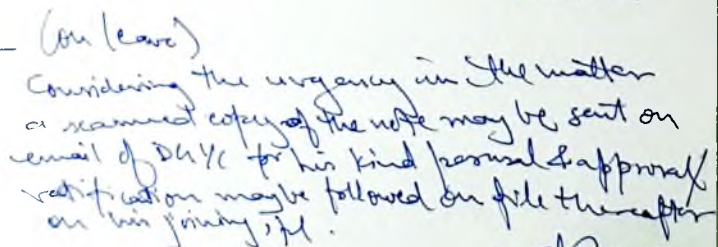 (on leave)
Considering the urgency in the matter
a scanned copy of the note may be sent on
email of DG/C for his kind perusal & approval
ratification may be followed on file thereafter
on his joining, pl.